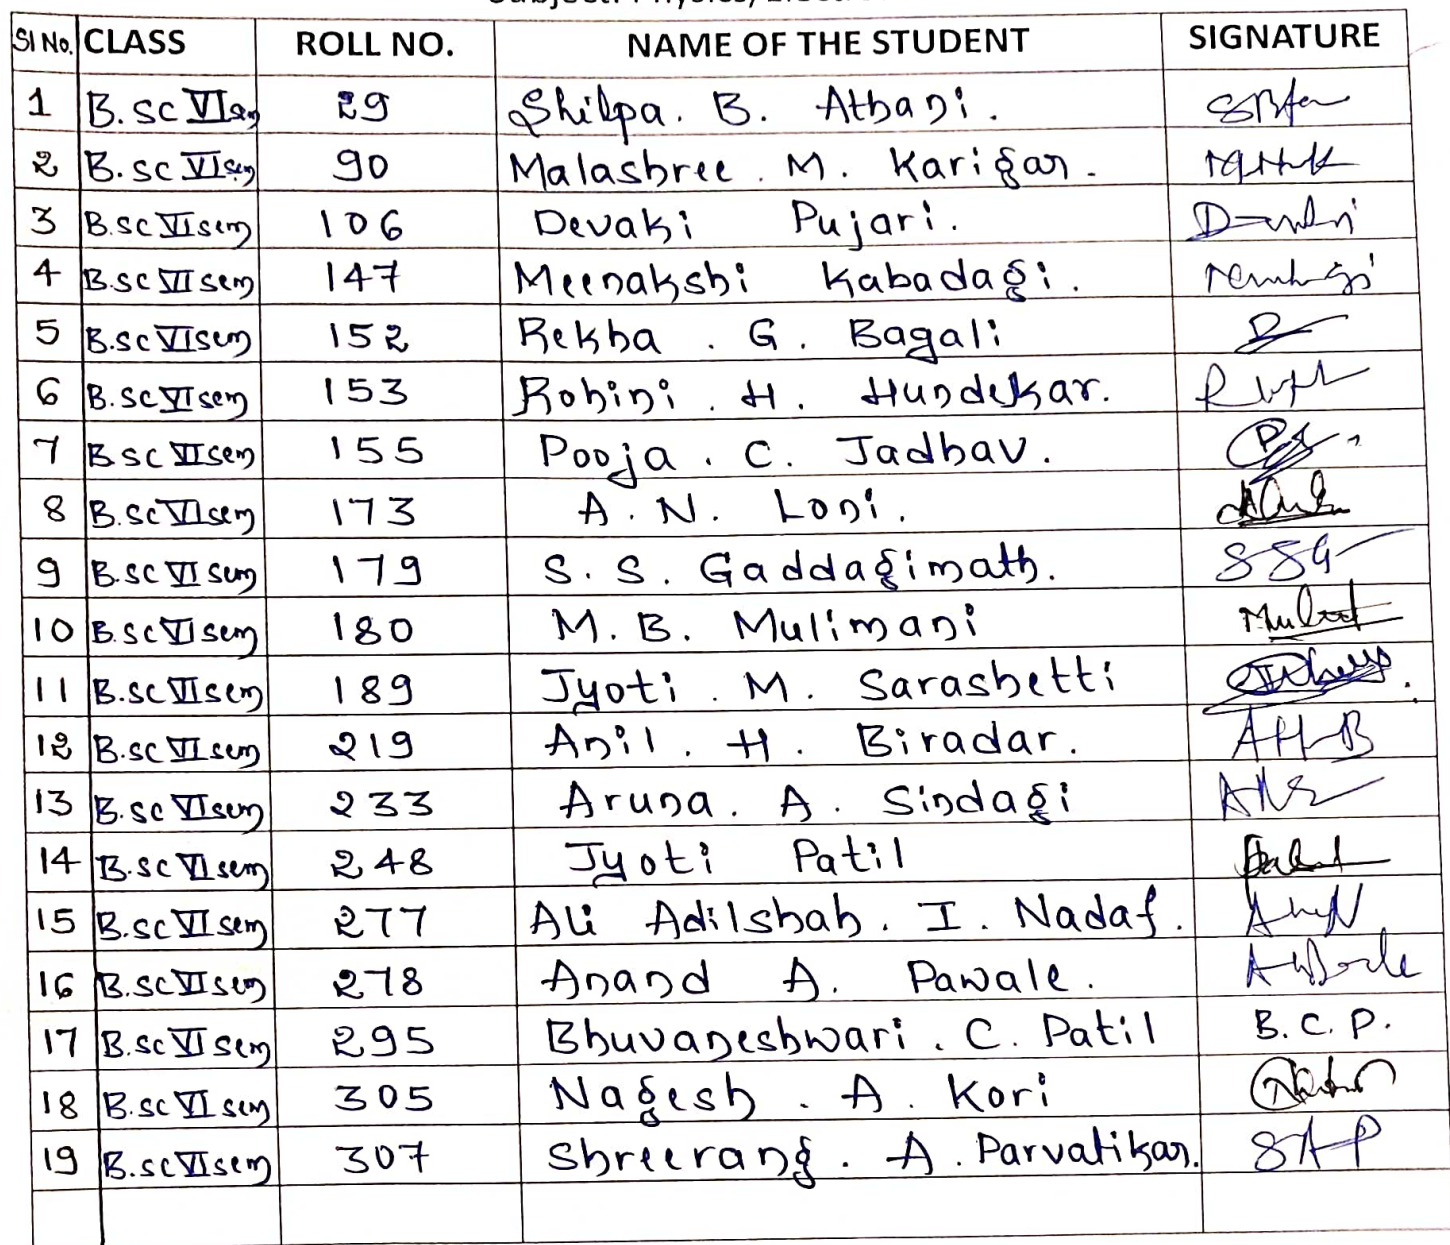 SI No. CLASS ROLL NO. NAME OF THE STUDENT SIGNATURE
1 B.sc VI sem 29 Shilpa. B. Athani.
2 B.sc VI sem 90 Malashree. M. Karigar.
3 B.sc VI sem 106 Devaki Pujari.
4 B.sc VI sem 147 Meenakshi Kabadagi.
5 B.sc VI sem 152 Rekha. G. Bagali
6 B.sc VI sem 153 Rohini. H. Hundekar.
7 B sc VI sem 155 Pooja. C. Jadhav.
8 B.sc VI sem 173 A. N. Loni.
9 B.sc VI sem 179 S. S. Gaddagimath. SSG
10 B.sc VI sem 180 M. B. Mulimani
11 B.sc VI sem 189 Jyoti. M. Sarashetti
12 B.sc VI sem 219 Anil. H. Biradar. AHB
13 B.sc VI sem 233 Aruna. A. Sindagi
14 B.sc VI sem 248 Jyoti Patil
15 B.sc VI sem 277 Ali Adilshah. I. Nadaf.
16 B.sc VI sem 278 Anand A. Pawale.
17 B.sc VI sem 295 Bhuvaneshwari. C. Patil B.C.P.
18 B.sc VI sem 305 Nagesh. A. Kori
19 B.sc VI sem 307 Shreerang. A. Parvatikar. SAP